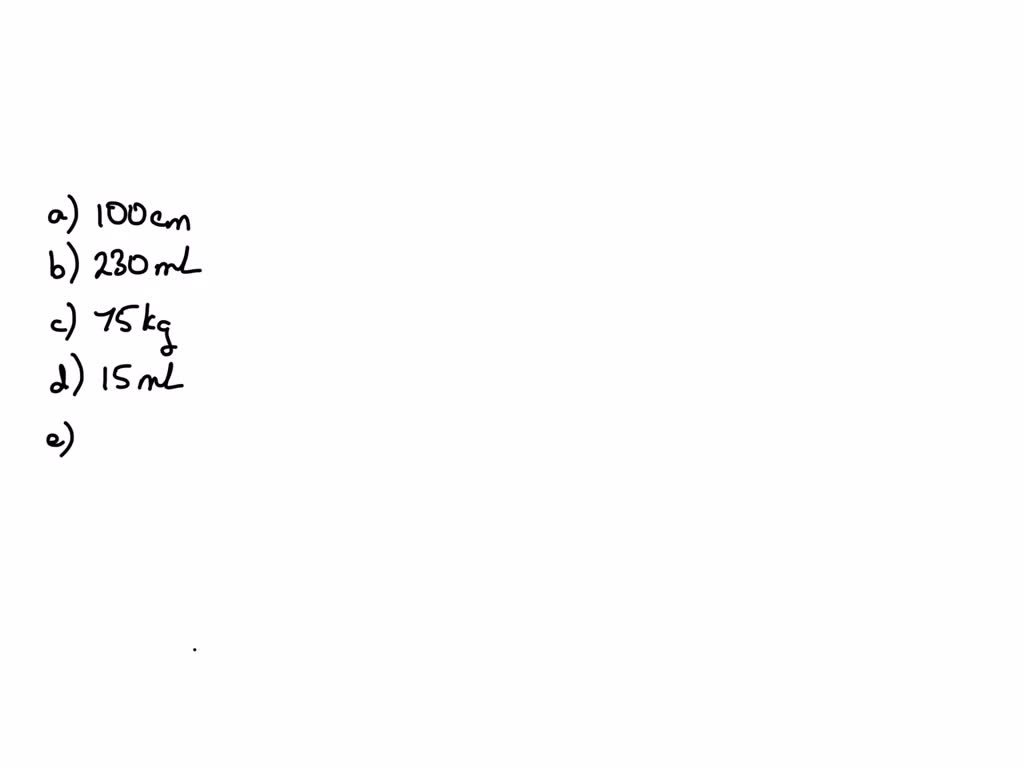 a) 100cm
b) 230mL
c) 75kg
d) 15mL
e)